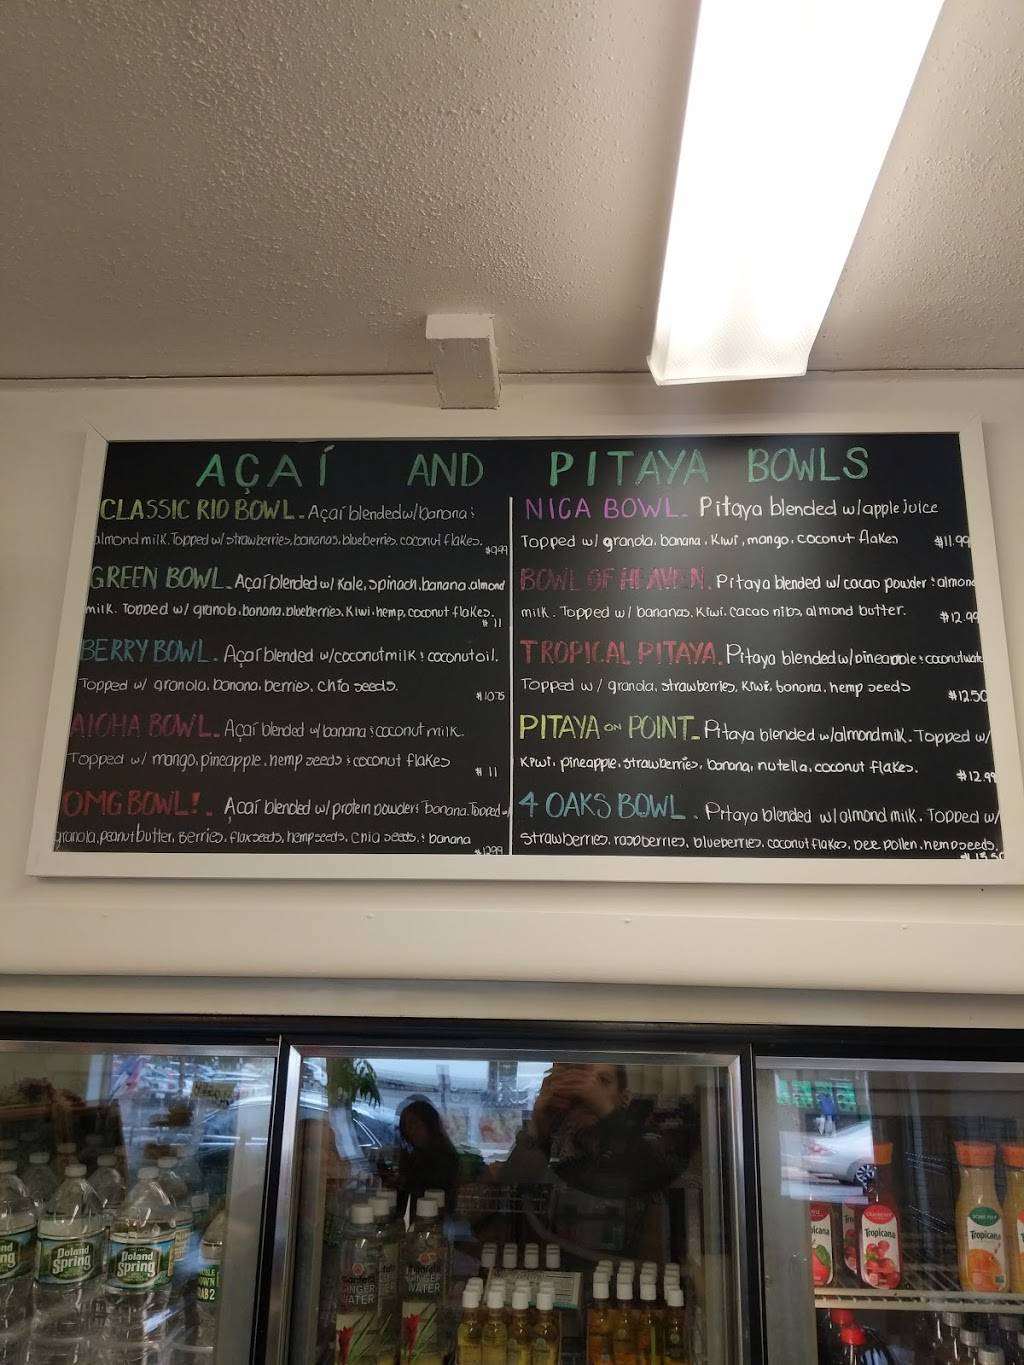 AÇAÍ AND PITAYA BOWLS
CLASSIC RIO BOWL - Açaí blended w/ banana &
almond milk. Topped w/ strawberries, bananas, blueberries, coconut flakes.
$9.99
GREEN BOWL - Açaí blended w/ Kale, spinach, banana, almond
milk. Topped w/ granola, banana, blueberries, Kiwi, hemp, coconut flakes.
$11
BERRY BOWL - Açaí blended w/ coconut milk & coconut oil.
Topped w/ granola, banana, berries, chia seeds.
$10.75
ALOHA BOWL - Açaí blended w/ banana & coconut milk.
Topped w/ mango, pineapple, hemp seeds & coconut flakes
$11
OMG BOWL! - Açaí blended w/ protein powder & banana. Topped w/
granola, peanut butter, Berries, flaxseeds, hemp seeds, Chia seeds, & banana
$12.99
NICA BOWL - Pitaya blended w/ apple juice
Topped w/ granola, banana, Kiwi, mango, coconut flakes $11.99
BOWL OF HEAVEN. Pitaya blended w/ cacao powder & almond
milk. Topped w/ bananas, Kiwi, cacao nibs, almond butter.
$12.99
TROPICAL PITAYA. Pitaya blended w/ pineapple & coconut wate
Topped w/ granola, strawberries, Kiwi, banana, hemp seeds
$12.50
PITAYA ON POINT - Pitaya blended w/ almond milk. Topped w/
Kiwi, pineapple, strawberries, banana, nutella, coconut flakes.
$12.99
4 OAKS BOWL. Pitaya blended w/ almond milk. Topped w/
strawberries, raspberries, blueberries, coconut flakes, bee pollen, hemp seeds.
$13.50
Poland Spring
Poland Spring
GINGER WATER
GINGER WATER
Tropicana
Tropicana